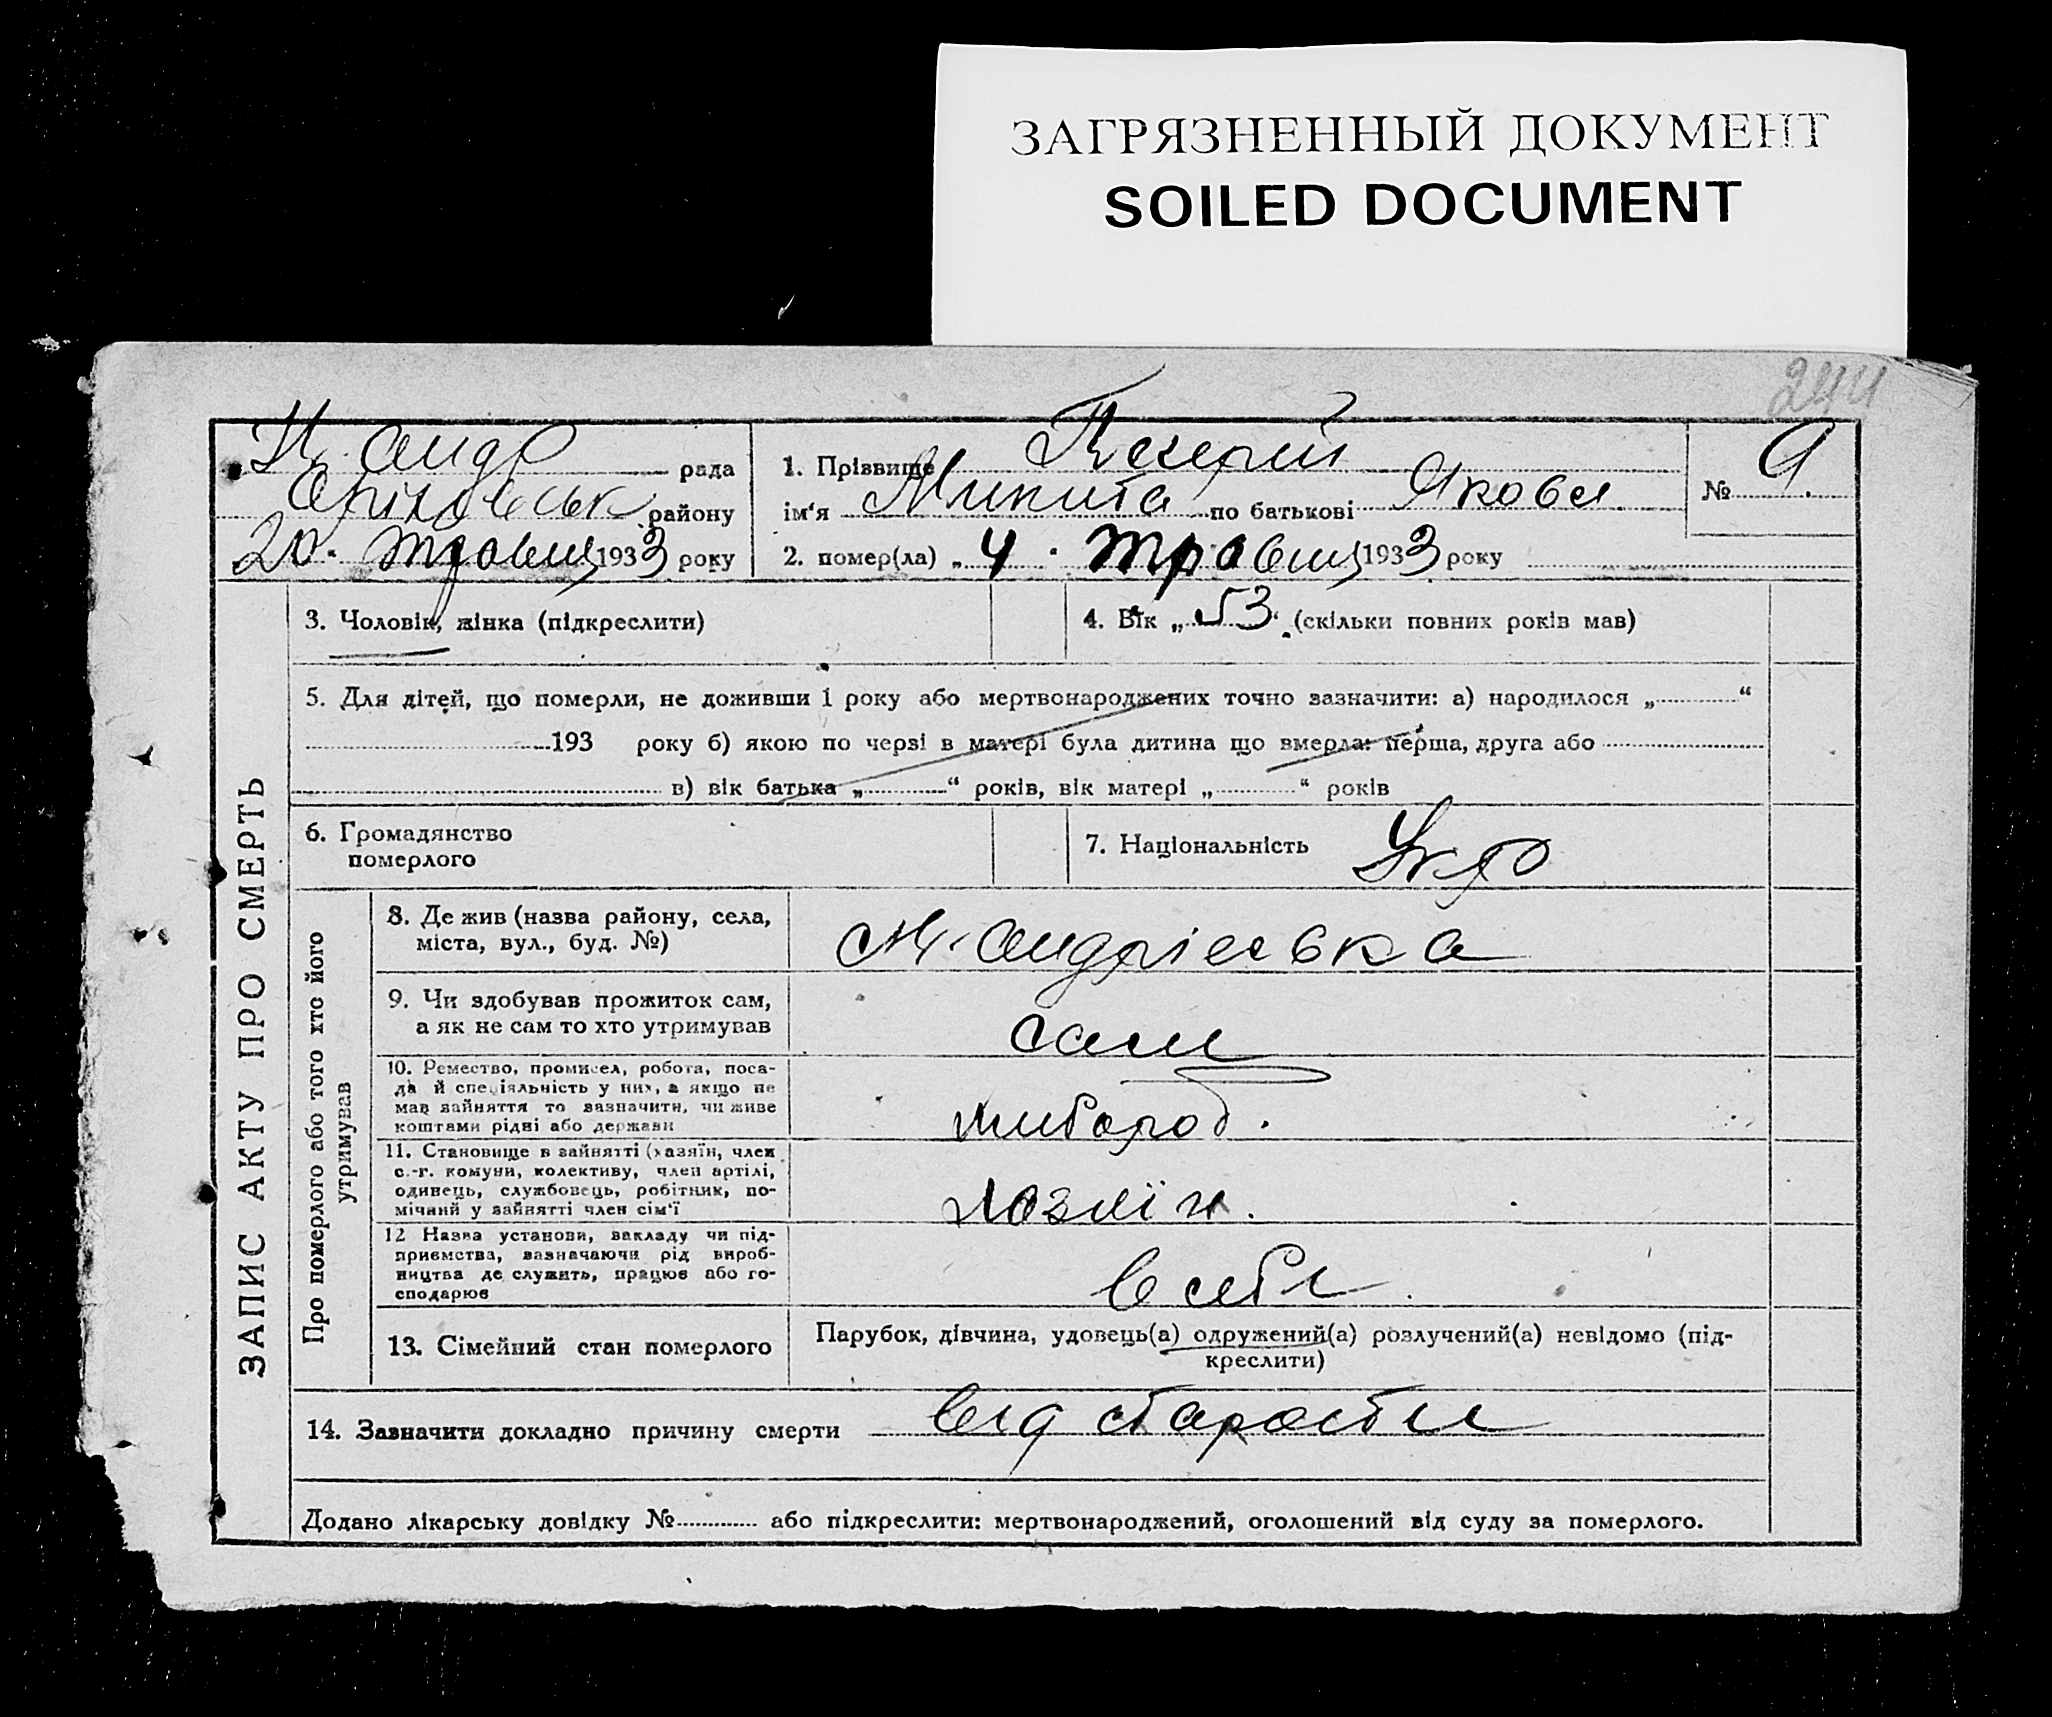 ЗАГРЯЗНЕННЫЙ ДОКУМЕНТ
SOILED DOCUMENT
244
Н. Андр рада
Оріховськ району
20. травня 1933 року
1. Прізвище
ім'я Микита по батькові Якова
2. помер(ла) „4. травня 1933 року
№ 9.
ЗАПИС АКТУ ПРО СМЕРТЬ
3. Чоловік, жінка (підкреслити)
4. Вік „53“ (скільки повних років мав)
5. Для дітей, що померли, не доживши 1 року або мертвонароджених точно зазначити: а) народилося „ “
193 року б) якою по черві в матері була дитина що вмерла: перша, друга або
в) вік батька „ “ років, вік матері „ “ років
6. Громадянство
померлого
7. Національність Укр
Про померлого або того хто його
утримував
8. Де жив (назва району, села,
міста, вул., буд. №)
Андріевка
9. Чи здобував прожиток сам,
а як не сам то хто утримував
сам
10. Ремество, промисел, робота, поса-
да й спеціяльність у них, а якщо не
мав зайняття то зазначити, чи живе
коштами рідні або держави
хлібороб.
11. Становище в зайнятті (хазяїн, член
с.-г. комуни, колективу, член артілі,
одинець, службовець, робітник, по-
мічний у зайнятті член сім'ї
хозяїн.
12 Назва установи, закладу чи під-
приємства, зазначаючи рід вироб-
ництва де служить, працює або го-
сподарює
в себе.
13. Сімейний стан померлого
Парубок, дівчина, удовець(а) одружений(а) розлучений(а) невідомо (під-
креслити)
14. Зазначити докладно причину смерти від старости
Додано лікарську довідку № або підкреслити: мертвонароджений, оголошений від суду за померлого.